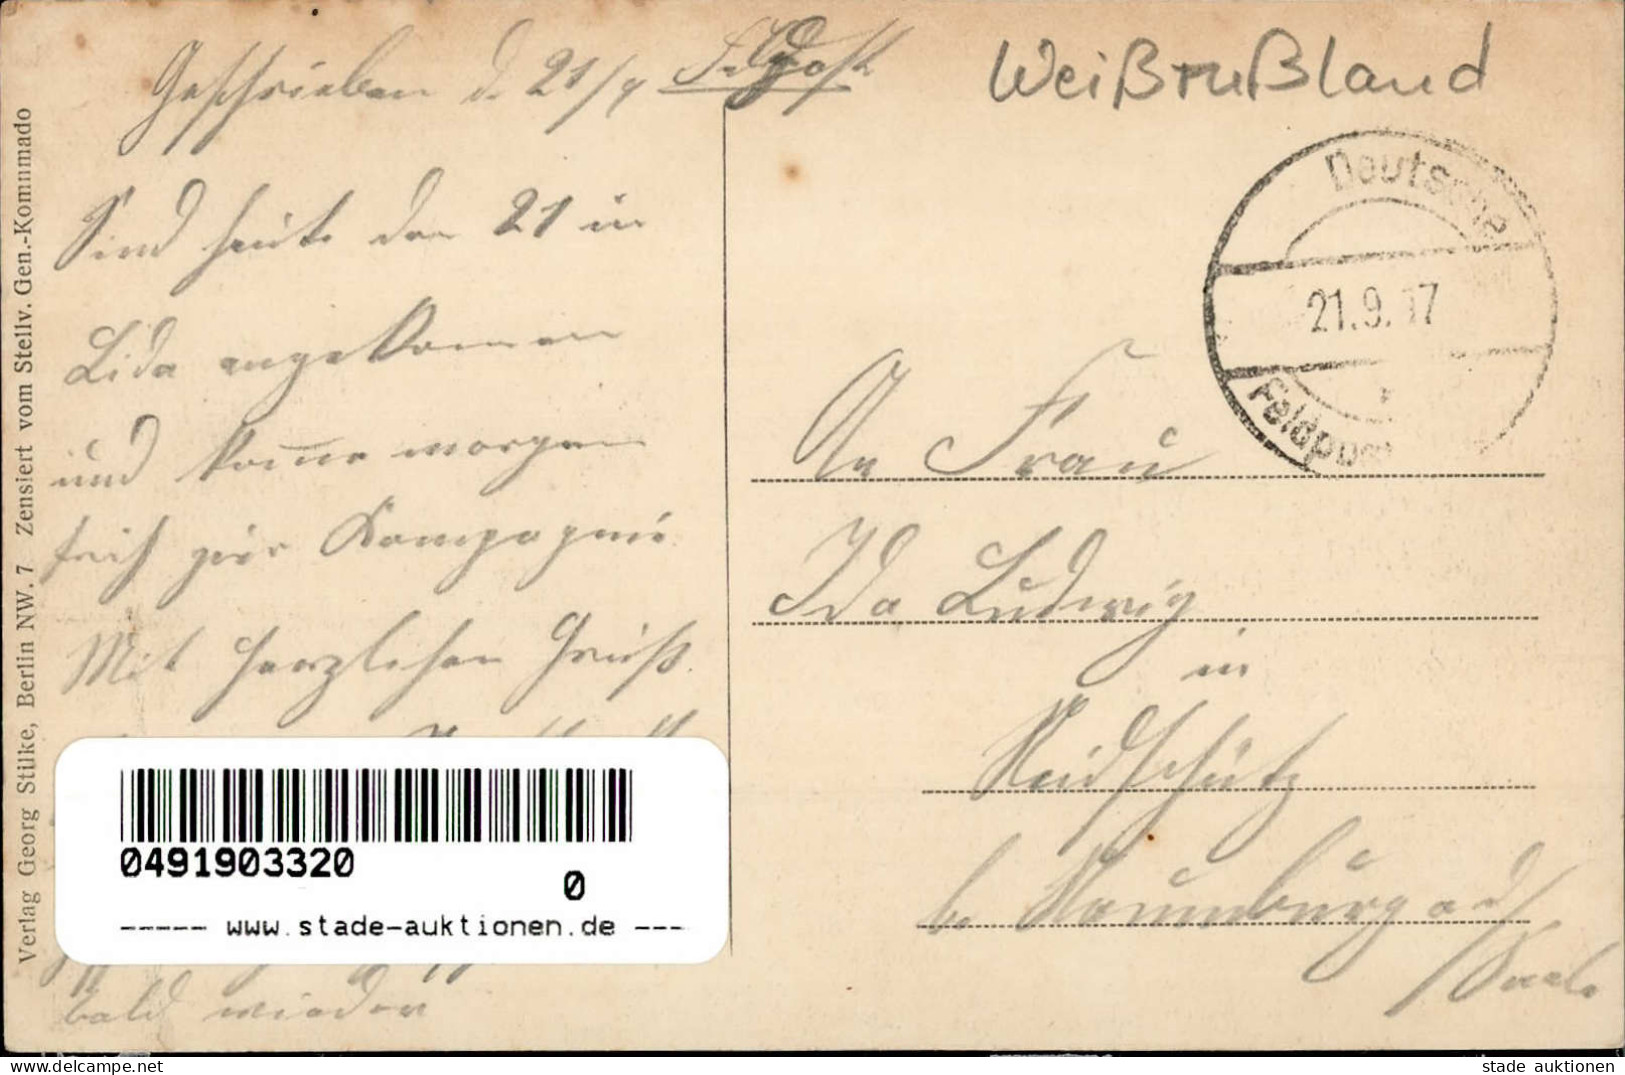 Geschrieben d. 21/9 Feldpost
Weißrußland
Sind heute den 21 in
Lida angekommen
und komme morgen
früh zur Kompagnie
Mit herzlichen Gruß
bald wieder
Deutsche
21.9.17
Feldpost
An Frau
Ida Ludwig
in
Neidschütz
b. Naumburg a d/
Saale
Verlag Georg Stilke, Berlin NW. 7 Zensiert vom Stellv. Gen.-Kommmado
0491903320
0
----- www.stade-auktionen.de ---
stade auktionen